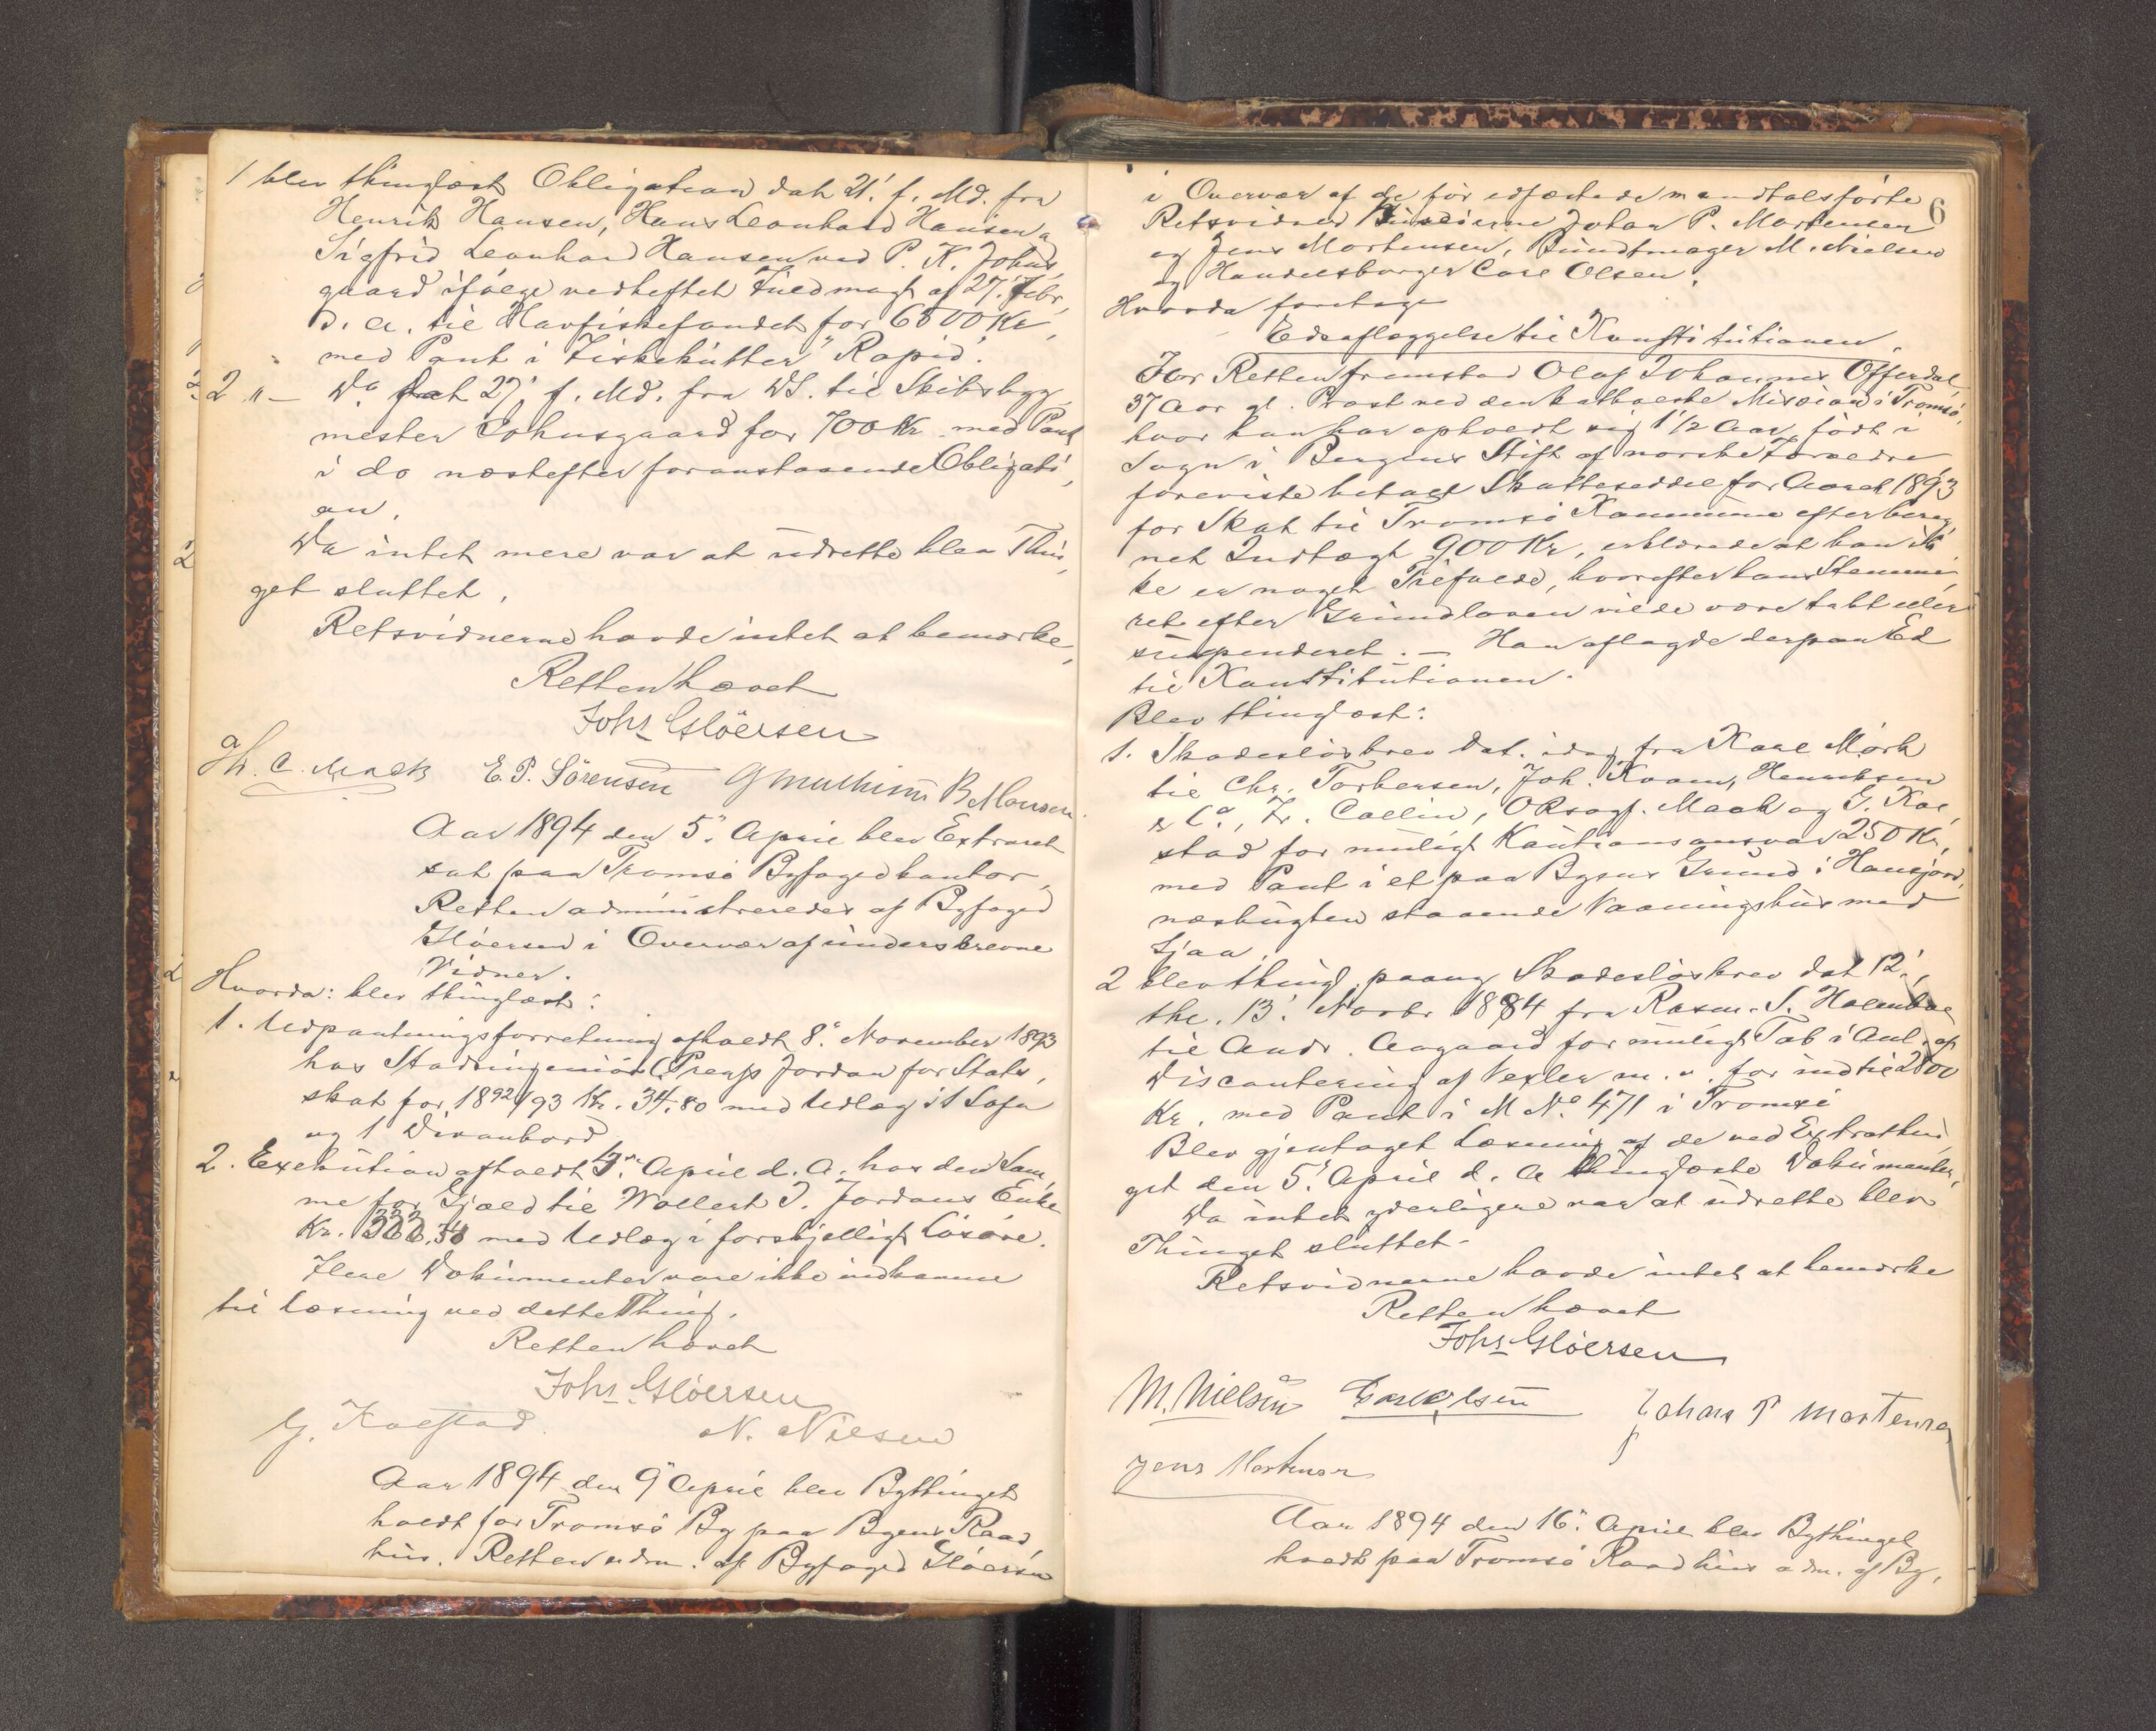 1 blev thinglæst Obligation dat 21' f. Md. fra
Henrik Hansen, Hans Leonhard Hansen &
Sigfrid Leonhard Hansen ved P. K. Johns,
gaard ifølge vedheftet Fuldmagt af 27. Febr,
d. A. til Havfiskefondet for 6500 Kr,
med Pant i Fiskekutter "Rapid".
2 " — Do dat 27' f. Md. fra DS. til Skibsbyg,
mester Johnsgaard for 700 Kr. med Pant
i do næstefter foranstaaende Obligati,
on.
Da intet mere var at udrette blev Thin,
get sluttet.
Retsvidnerne havde intet at bemærke,
Retten hævet
Johs Gløersen
Th. C. Mack E. P. Sørensen G Mathisen B Monsen
Aar 1894 den 5" April blev Extraret
sat paa Tromsø Byfogedkontor,
Retten administreredes af Byfoged
Gløersen i Overvær af underskrevne
Vidner.
Hvorda: blev thinglæst:
1. Udpantningsforretning afholdt 8" November 1893
hos Stadsingeniør Preuss Jordan for Stats,
skat for 1892/93 Kr. 34.80 med Udlæg i 1 Sofa
og 1 Divanbord
2. Exekution afholdt 4" April d. A. hos den Sam,
me for Gjæld til Wollert D. Jordans Enke
Kr. 333.34 med Udlæg i forskjelligt Løsøre.
Flere Dokumenter vare ikke indkomne
til Læsning ved dette Thing.
Retten hævet
Johs. Gløersen
G. Kolstad. N. Nilsen
Aar 1894 den 9" April blev Bythinget
holdt for Tromsø By paa Byens Raad,
hus. Retten adm. af Byfoged Gløersen
6
i Overvær af de før edfæstede mandtalsførte
Retsvidner Huseierne Johan P. Mortensen
og Jens Mortensen, Bundtmager M. Nielsen
og Handelsborger Carl Olsen.
Hvorda foretoges
Edsaflæggelse til Konstitutionen.
For Retten fremstod Olaf Johannes Offerdal
37 Aar gl. Præst ved den katholske Mission i Tromsø,
hvor han har opholdt sig 1 1/2 Aar, født i
Sogn i Bergens Stift af norske Forældre
foreviste betalt Skatteseddel for Aaret 1893
for Skat til Tromsø Kommune efter bereg,
net Indtægt 900 Kr, erklærede at han ik
ke er noget Tilfælde, hvorefter hans Stemme,
ret efter Grundloven vilde være tabt eller
suspenderet. — Han aflagde derpaa Ed
til Konstitutionen.
Blev thinglæst:
1. Skadesløsbrev dat. idag fra Karl Mørk
til Chr. Torbersen, Joh. Kvam, Henriksen
& Co, Fr. Collin, ORsagf. Mack og G. Kol,
stad for muligt Kautionsansvar 250 Kr,
med Pant i et paa Byens Grund i Hansjord,
næsbugten staaende Vaaningshus med
Sjaa.
2 blev thingl. paany Skadesløsbrev dat 12'
thl. 13' Novbr 1884 fra Rasm. S. Holmboe
til Andr. Aagaard for muligt Tab i Anl. af
Discontering af Vexler m. v. for indtil 2500
Kr. med Pant i M No 471 i Tromsø
Blev gjentaget Læsning af de ved Extrathin,
get den 5' April d. A thinglæste Dokumenter,
Da intet yderligere var at udrette blev
Thinget sluttet.
Retsvidnerne havde intet at bemærke
Retten hævet
Johs Gløersen
M. Nielsen Carl Olsen Johans P Mortensen
Jens Mortensen
Aar 1894 den 16" April blev Bythinget
holdt paa Tromsø Raadhus adm. af By,